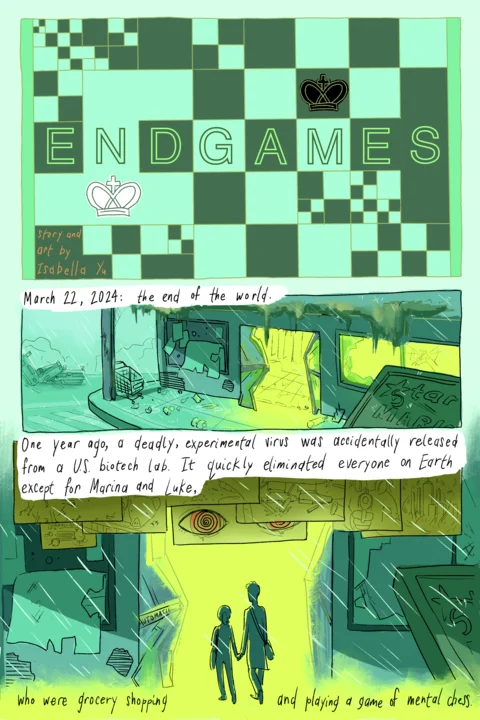 ENDGAMES
story and
art by
Isabella Yu
March 22, 2024: the end of the world.
Star
MARK
One year ago, a deadly, experimental virus was accidentally released
from a U.S. biotech lab. It quickly eliminated everyone on Earth
except for Marina and Luke,
AUTOMATIC
who were grocery shopping
and playing a game of mental chess.